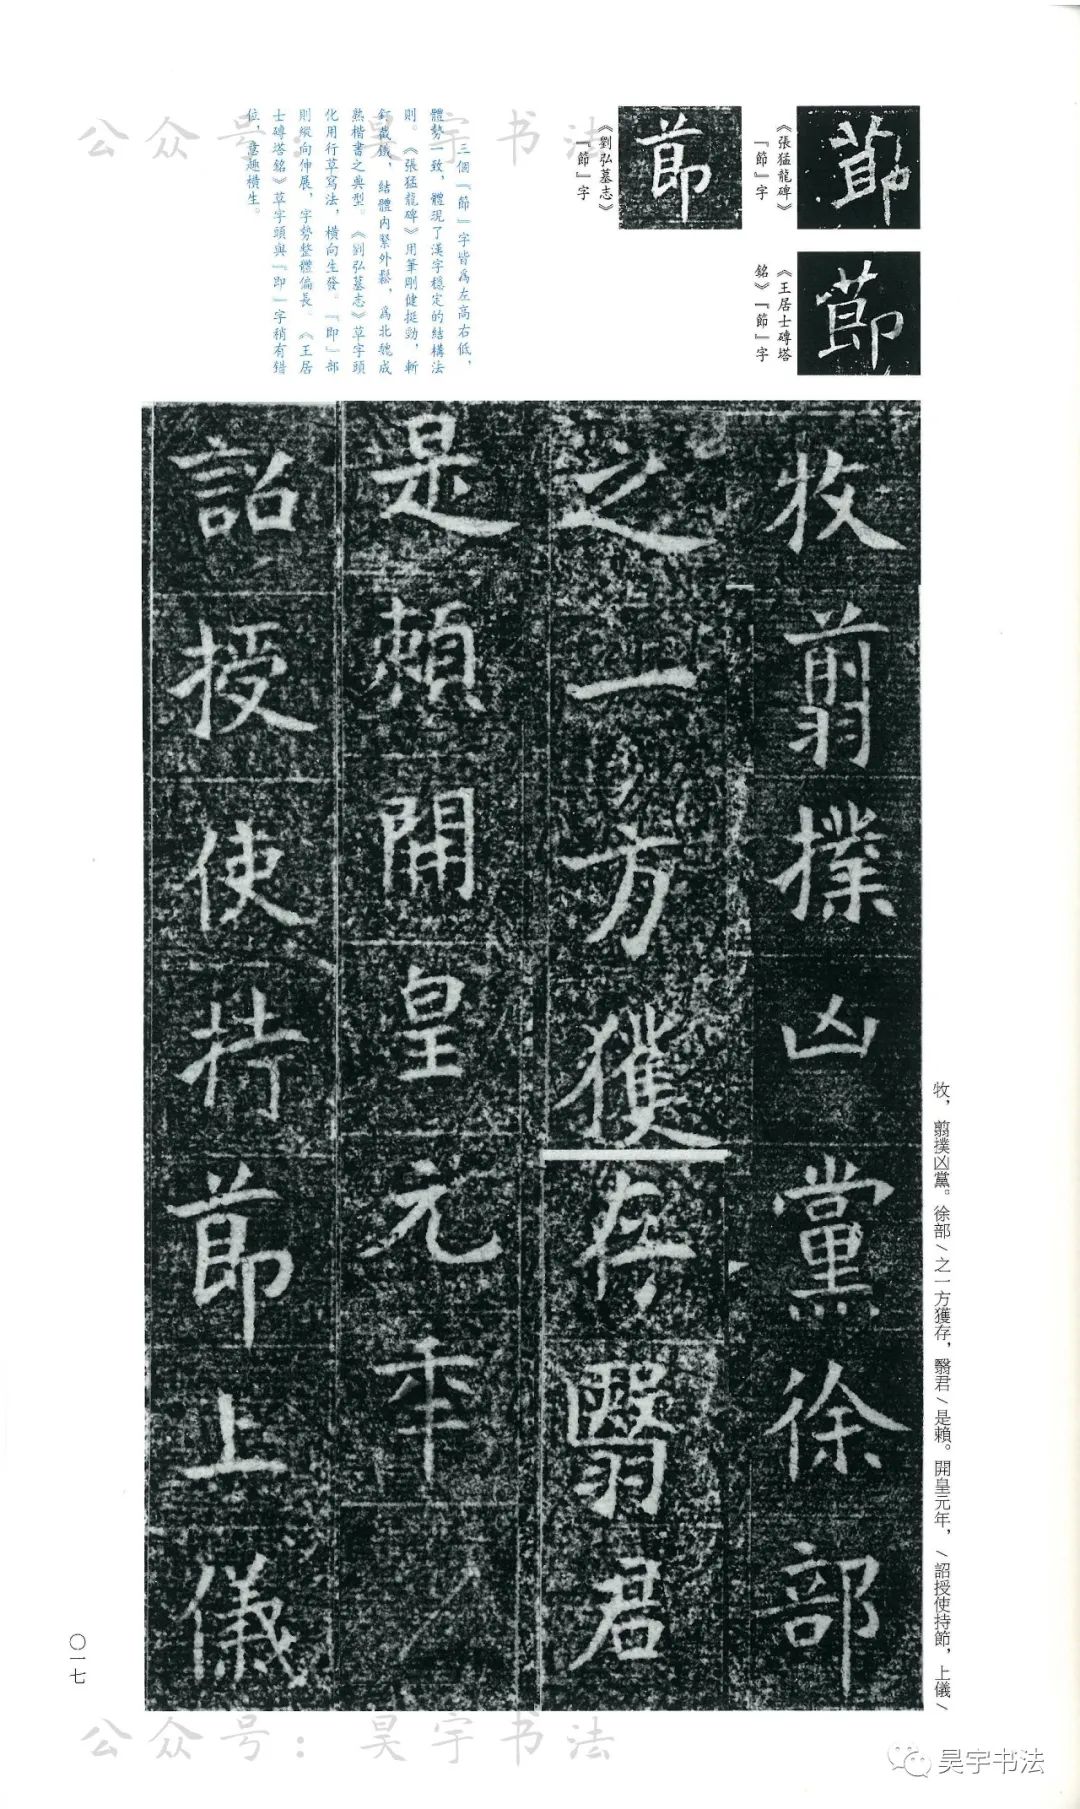 公众号：昊宇书法
《張猛龍碑》
『節』字
《王居士磚塔
銘》『節』字
《劉弘墓志》
『節』字
三個『節』字皆爲左高右低，
體勢一致，體現了漢字穩定的結構法
則。《張猛龍碑》用筆剛健挺勁，斬
釘截鐵，結體内緊外鬆，爲北魏成
熟楷書之典型。《劉弘墓志》草字頭
化用行草寫法，橫向生發。『即』部
則縱向伸展，字勢整體偏長。《王居
士磚塔銘》草字頭與『即』字稍有錯
位，意趣橫生。
牧翦撲凶黨徐部
之一方獲存翳君
是賴開皇元年
詔授使持節上儀
牧，翦撲凶黨。徐部/之一方獲存，翳君/是賴。開皇元年，/詔授使持節，上儀/
〇一七
公众号：昊宇书法
昊宇书法